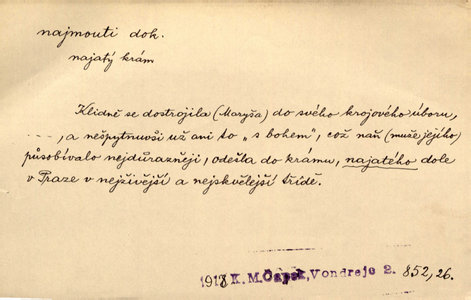 najmouti dok.
najatý krám
Klidně se dostrojila (Maryša) do svého krojového úboru,
---, a nešpytnuvši už ani to „s bohem", což naň (muže jejího)
působívalo nejdůrazněji, odešla do krámu, najatého dole
v Praze v nejživější a nejskvělejší třídě.
1917 K. M. Čapek, Vondrejc 2. 852,26.